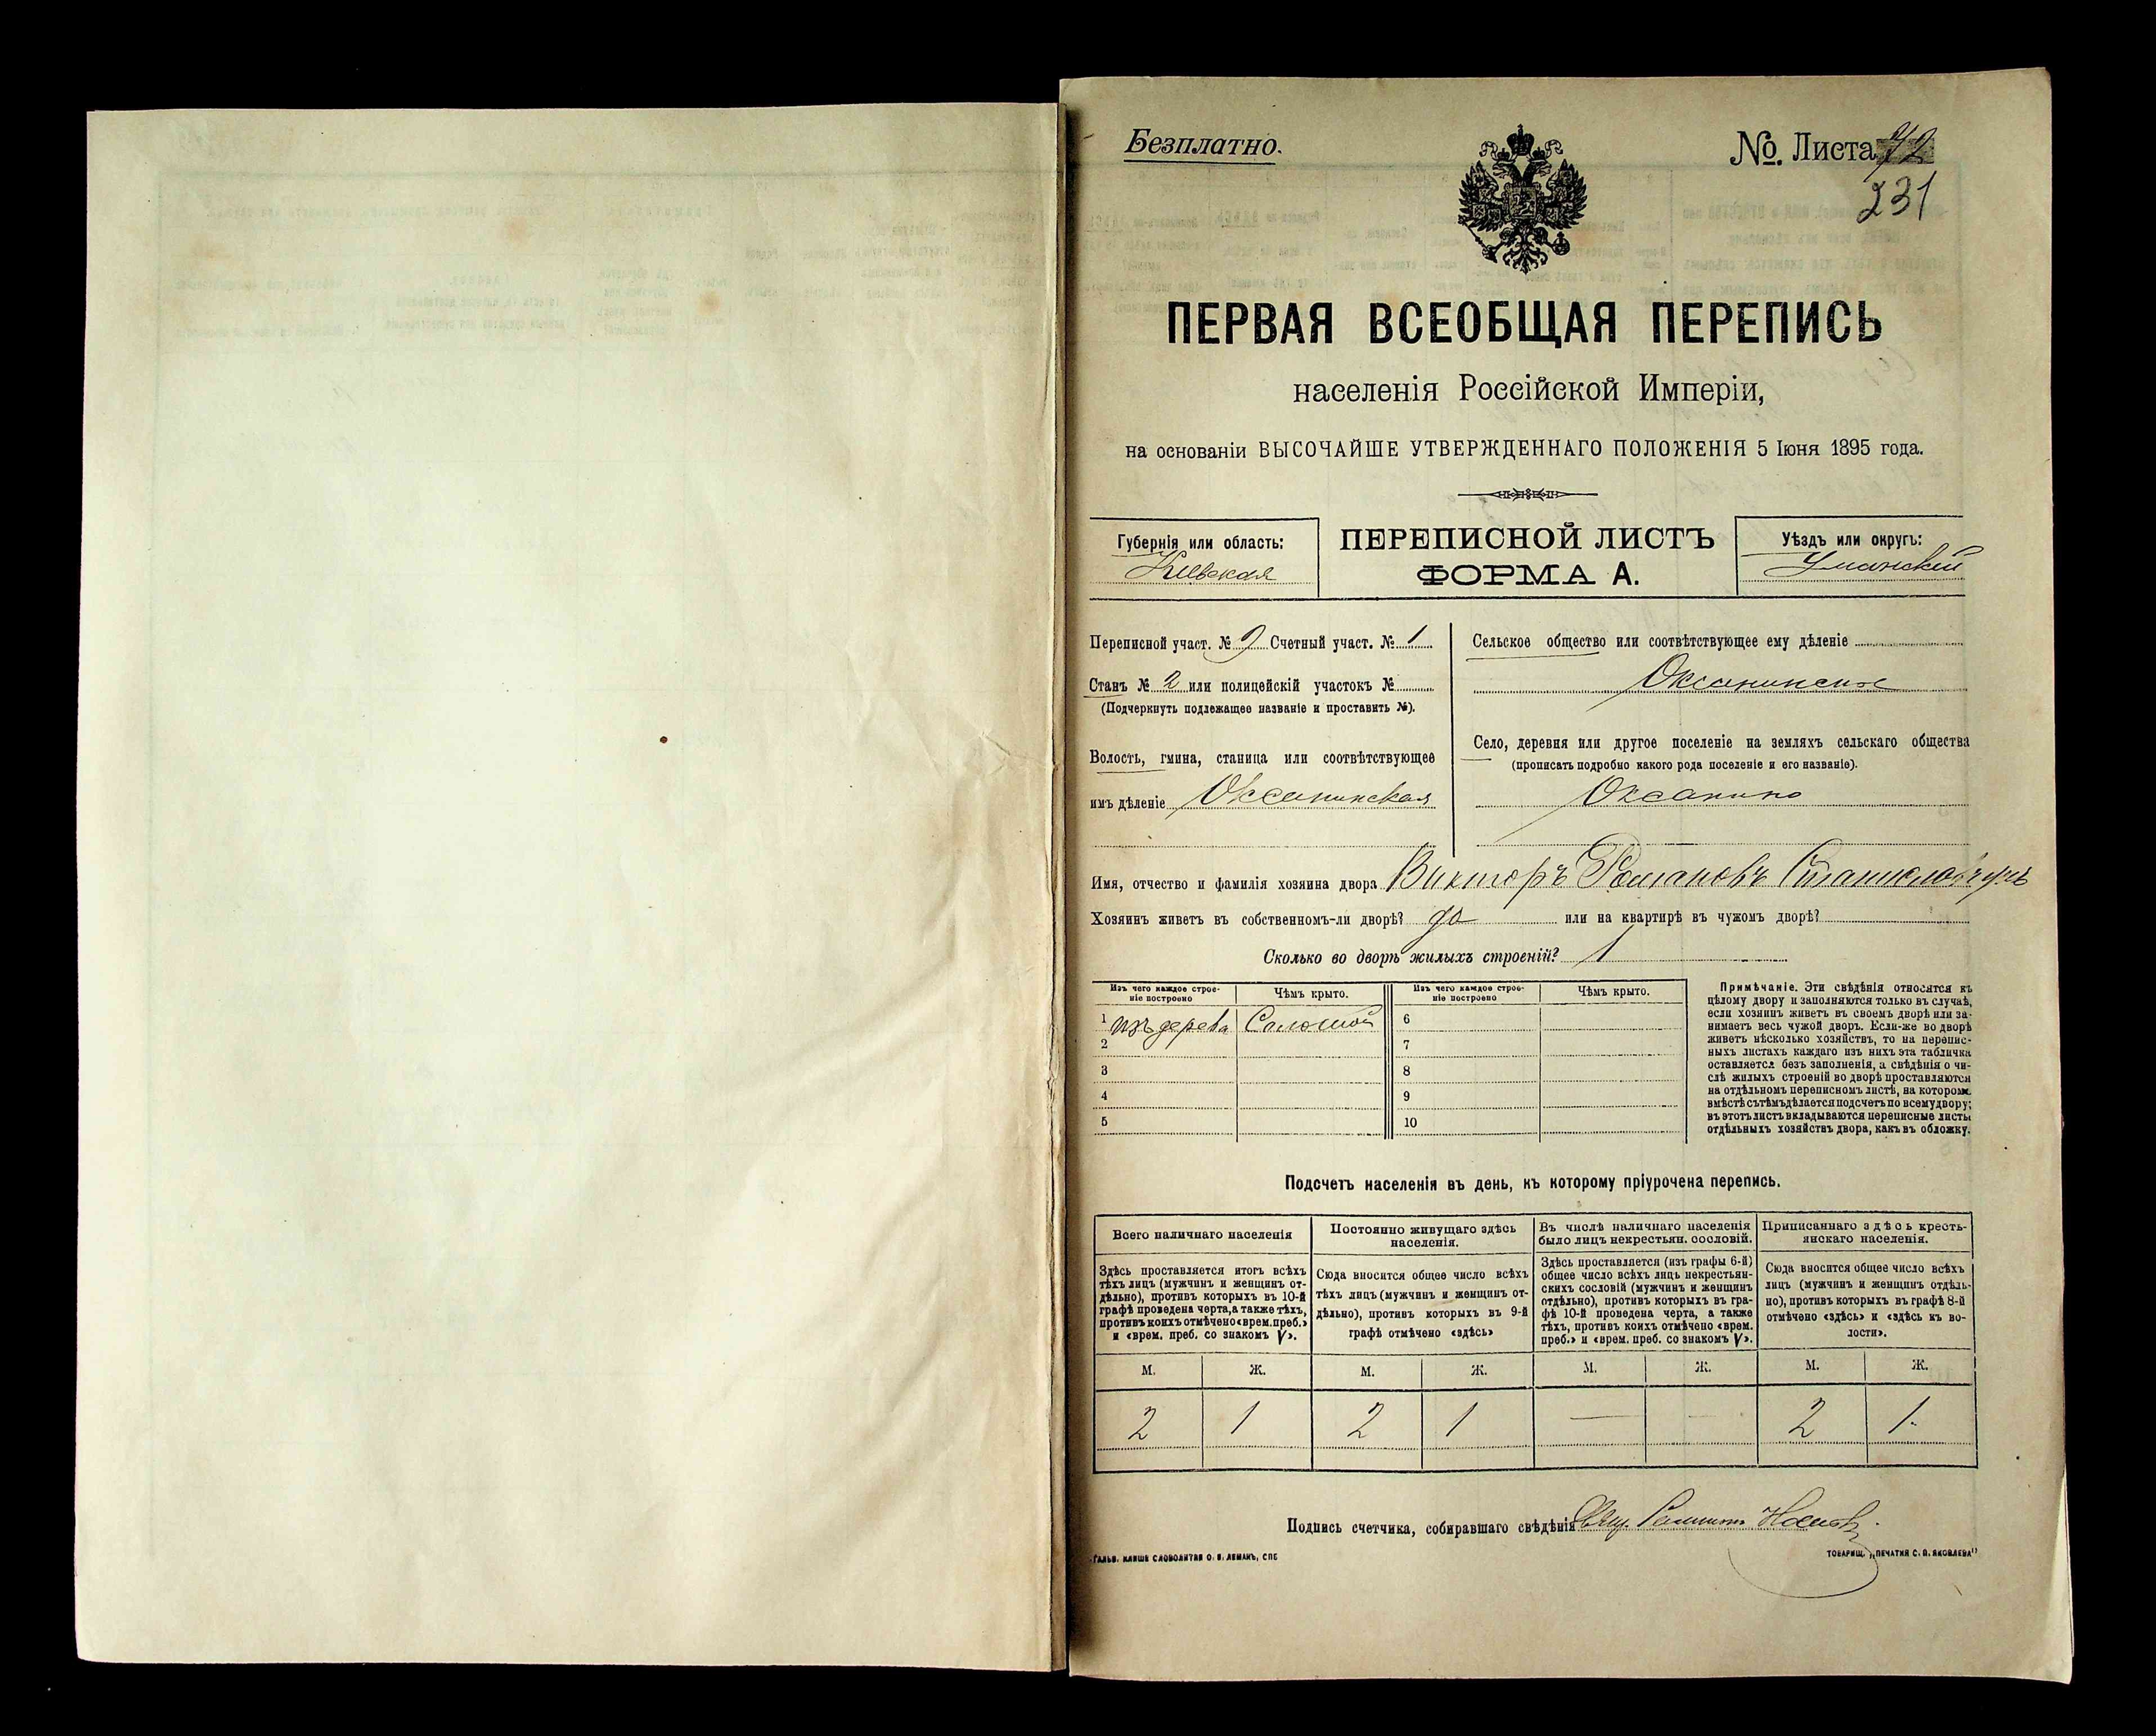 Безплатно.
№. Листа 72
231
ПЕРВАЯ ВСЕОБЩАЯ ПЕРЕПИСЬ
населенія Россійской Имперіи,
на основаніи ВЫСОЧАЙШЕ УТВЕРЖДЕННАГО ПОЛОЖЕНІЯ 5 Іюня 1895 года.
Губернія или область:
Кіевская
ПЕРЕПИСНОЙ ЛИСТЪ
ФОРМА А.
Уѣздъ или округъ:
Уманскій
Переписной участ. № 9 Счетный участ. № 1
Станъ № 2 или полицейскій участокъ №
(Подчеркнуть подлежащее названіе и проставить №).
Волость, гмина, станица или соотвѣтствующее
имъ дѣленіе Оксанинская
Сельское общество или соотвѣтствующее ему дѣленіе
Оксанинское
Село, деревня или другое поселеніе на земляхъ сельскаго общества
(прописать подробно какого рода поселеніе и его названіе).
Оксанино
Имя, отчество и фамилія хозяина двора Викторъ Романовъ
Хозяинъ живетъ въ собственномъ-ли дворѣ? да или на квартирѣ въ чужомъ дворѣ?
Сколько во дворѣ жилыхъ строеній? 1
Изъ чего каждое строе-
ніе построено
Чѣмъ крыто.
Изъ чего каждое строе-
ніе построено
Чѣмъ крыто.
1 изъ дерева Соломой 6
2 7
3 8
4 9
5 10
Примѣчаніе. Эти свѣдѣнія относятся къ
цѣлому двору и заполняются только въ случаѣ,
если хозяинъ живетъ въ своемъ дворѣ или за-
нимаетъ весь чужой дворъ. Если-же во дворѣ
живетъ нѣсколько хозяйствъ, то на перепис-
ныхъ листахъ каждаго изъ нихъ эта табличка
оставляется безъ заполненія, а свѣдѣнія о чи-
слѣ жилыхъ строеній во дворѣ проставляются
на отдѣльномъ переписномъ листѣ, на которомъ
вмѣстѣ съ тѣмъ дѣлается подсчетъ по всему двору;
въ этотъ листъ вкладываются переписные листы
отдѣльныхъ хозяйствъ двора, какъ въ обложку.
Подсчетъ населенія въ день, къ которому пріурочена перепись.
Всего наличнаго населенія
Здѣсь проставляется итогъ всѣхъ
тѣхъ лицъ (мужчинъ и женщинъ от-
дѣльно), противъ которыхъ въ 10-й
графѣ проведена черта, а также тѣхъ,
противъ коихъ отмѣчено «врем. преб.»
и «врем. преб. со знакомъ V».
Постоянно живущаго здѣсь
населенія.
Сюда вносится общее число всѣхъ
тѣхъ лицъ (мужчинъ и женщинъ от-
дѣльно), противъ которыхъ въ 9-й
графѣ отмѣчено «здѣсь»
Въ числѣ наличнаго населенія
было лицъ некрестьян. сословій.
Здѣсь проставляется (изъ графы 6-й)
общее число всѣхъ лицъ некрестьян-
скихъ сословій (мужчинъ и женщинъ
отдѣльно), противъ которыхъ въ гра-
фѣ 10-й проведена черта, а также
тѣхъ, противъ коихъ отмѣчено «врем.
преб.» и «врем. преб. со знакомъ V».
Приписаннаго здѣсь кресть-
янскаго населенія.
Сюда вносится общее число всѣхъ
лицъ (мужчинъ и женщинъ отдѣль-
но), противъ которыхъ въ графѣ 8-й
отмѣчено «здѣсь» и «здѣсь къ во-
лости».
М. Ж. М. Ж. М. Ж. М. Ж.
2 1 2 1 — — 2 1.
Подпись счетчика, собиравшаго свѣдѣнія
ГАЛЬВ. КЛИШЕ СЛОВОЛИТНЯ О. И. ЛЕМАНЪ, СПБ
ТОВАРИЩ. „ПЕЧАТНЯ С. П. ЯКОВЛЕВА"